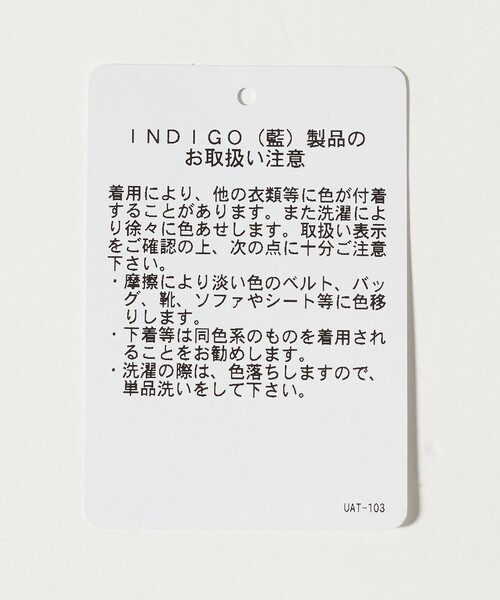 ＩＮＤＩＧＯ（藍）製品の
お取扱い注意
着用により、他の衣類等に色が付着
することがあります。また洗濯によ
り徐々に色あせします。取扱い表示
をご確認の上、次の点に十分ご注意
下さい。
・摩擦により淡い色のベルト、バッ
グ、靴、ソファやシート等に色移
りします。
・下着等は同色系のものを着用され
ることをお勧めします。
・洗濯の際は、色落ちしますので、
単品洗いをして下さい。
UAT-103